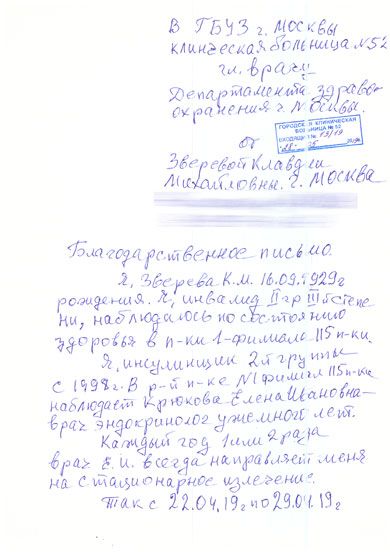 В ГБУЗ г. Москвы
клинческая больница N52
гл. врачу
Департамента здраво-
охранения г. Москвы.
ГОРОДСКАЯ КЛИНИЧЕСКАЯ
БОЛЬНИЦА № 52
от
Зверевой Клавдии
Михайловны. г. Москва
Благодарственное письмо.
Я, Зверева К.М. 16.09.1929г
рождения. Я, инвалид II гр III степе
ни, наблюдаюсь по состоянию
здоровья в п-ки 1-филиала 115 п-ки.
Я, инсулинщик 2й группы
с 1998г. В р-й п-ке N1 филиал 115 п-ке
наблюдает Крюкова Елена Ивановна-
врач эндокринолог уже много лет.
Каждый год 1 или 2 раза
врач Е.И. всегда направляет меня
на стационарное излечение.
Так с 22.04.19г по 29.04.19г